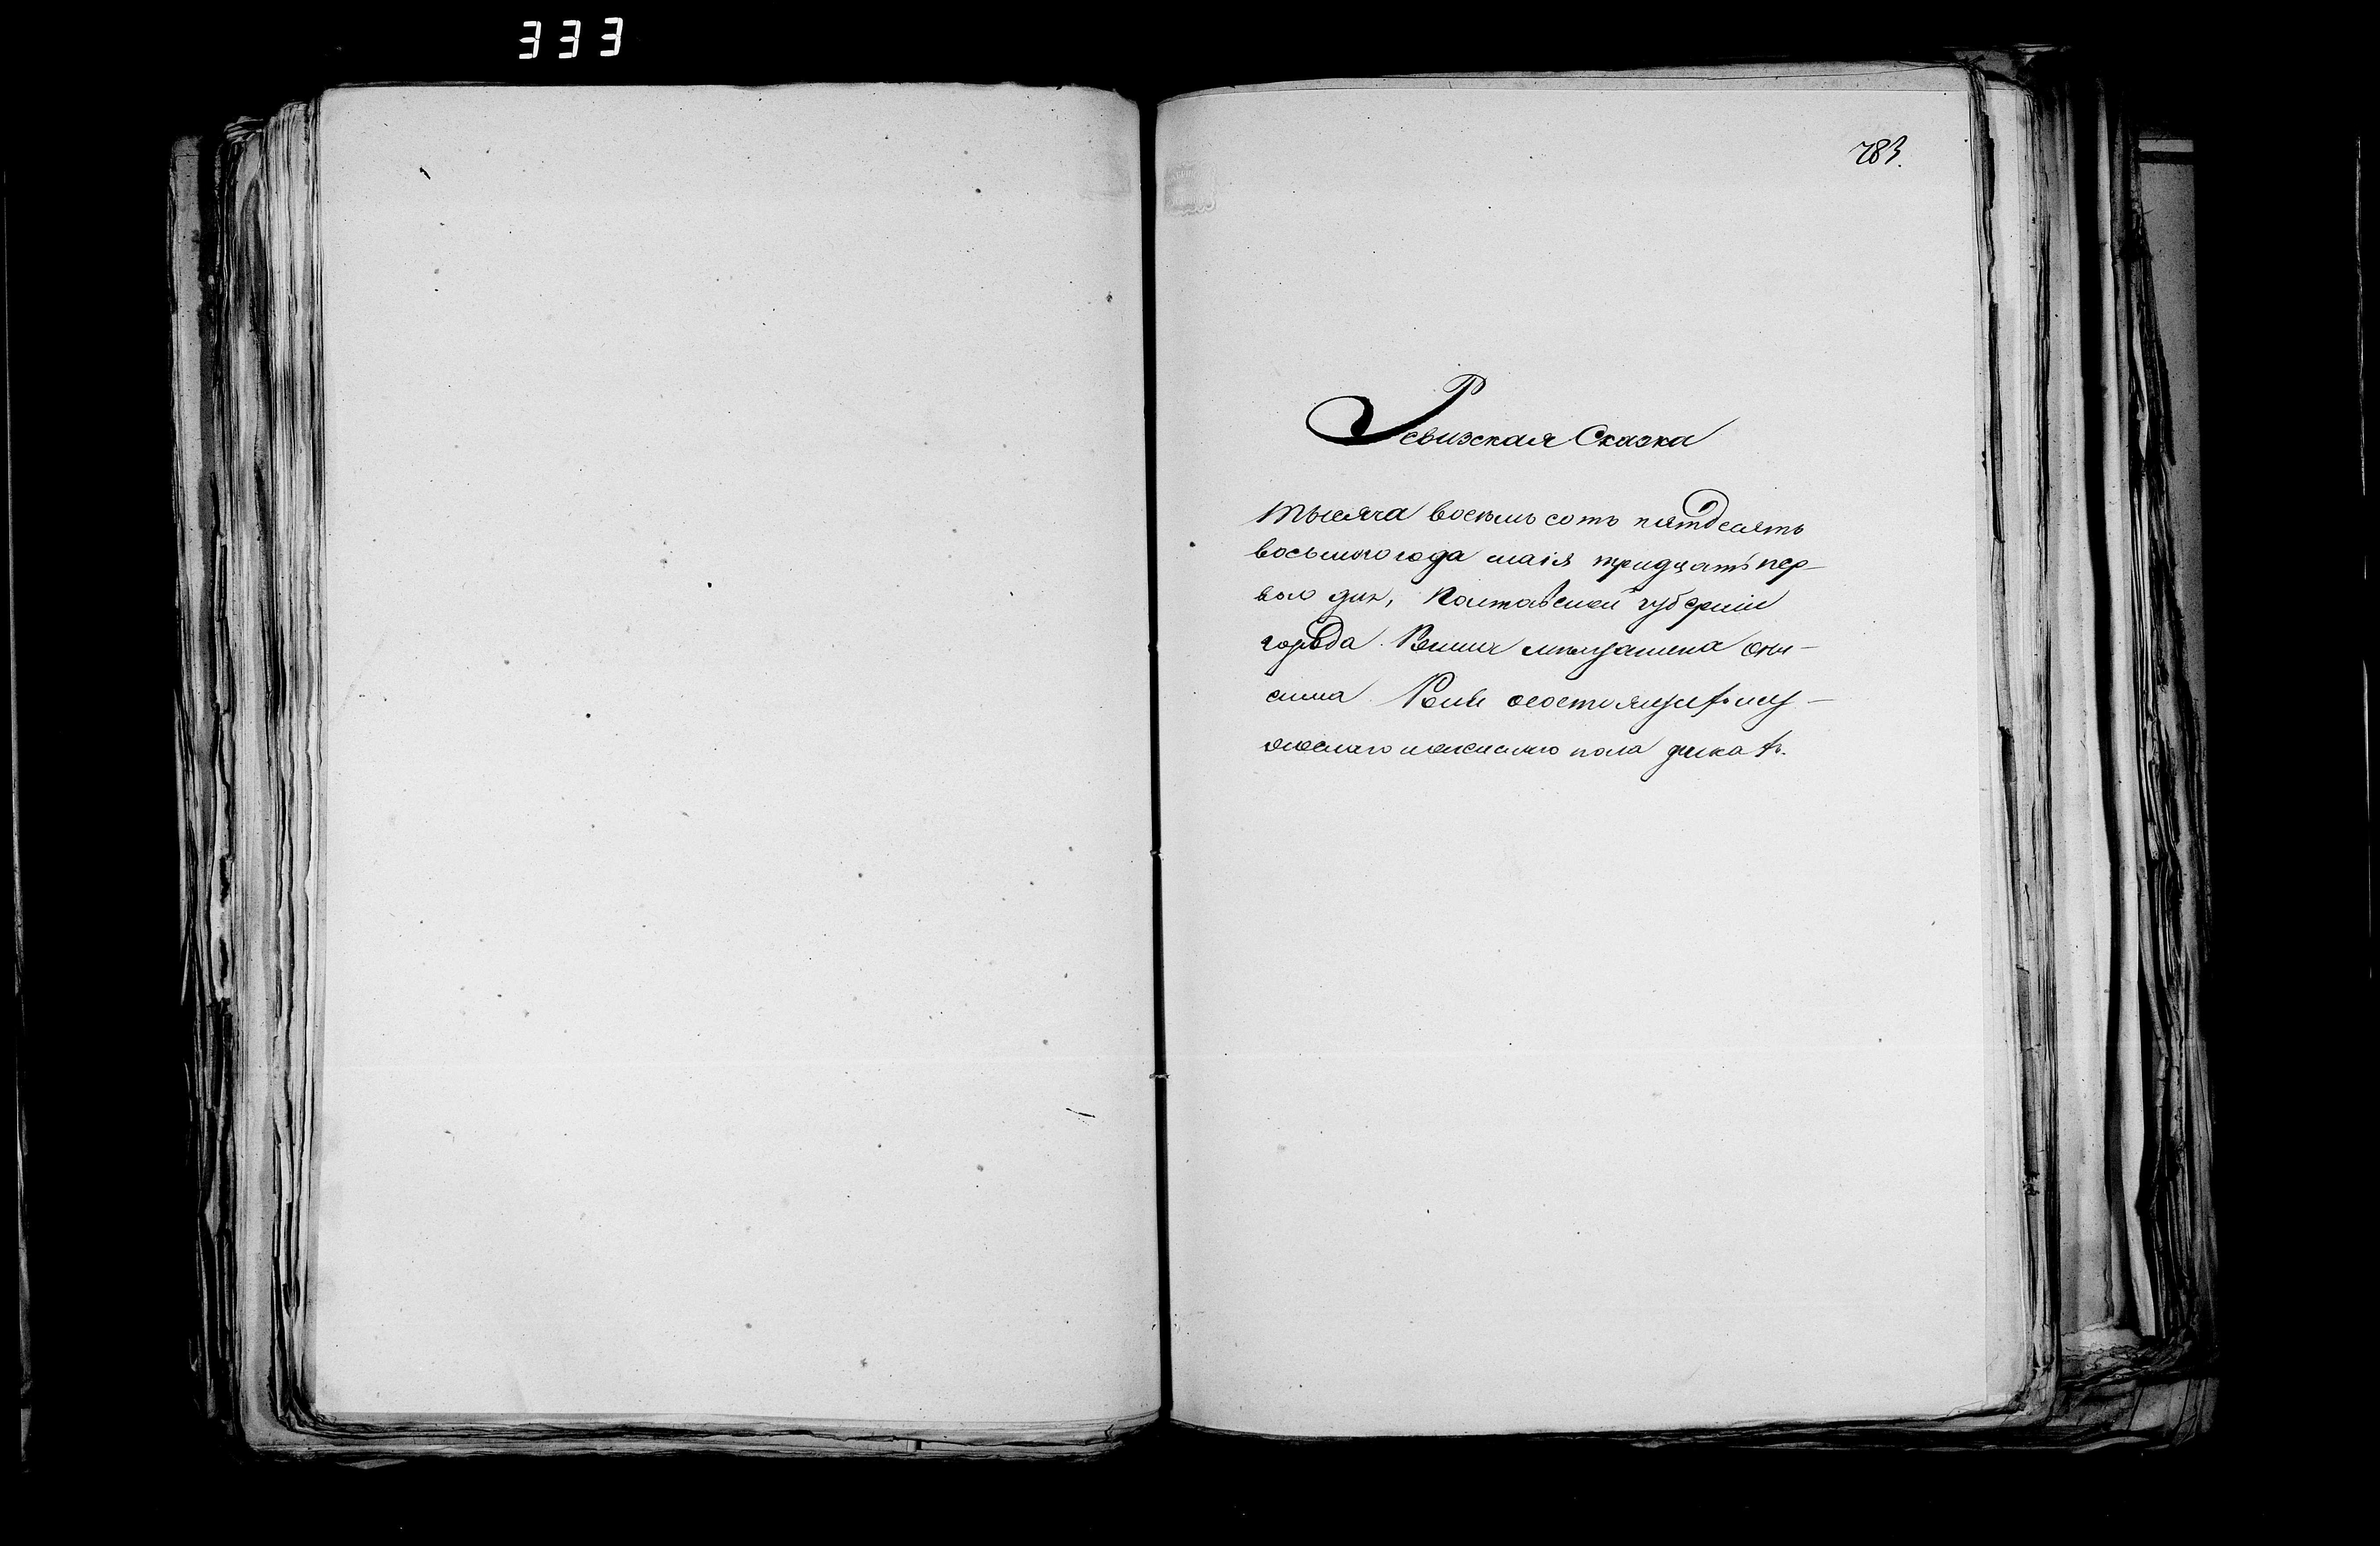 333
783.
Ревизская Сказка
тысяча восемь сотъ пятдесятъ
восьмого года маія тридцать пер-
вого дня, Полтавской губерніи
города мещанина Они-
сима состоящихъ
мужескаго пола душахъ.